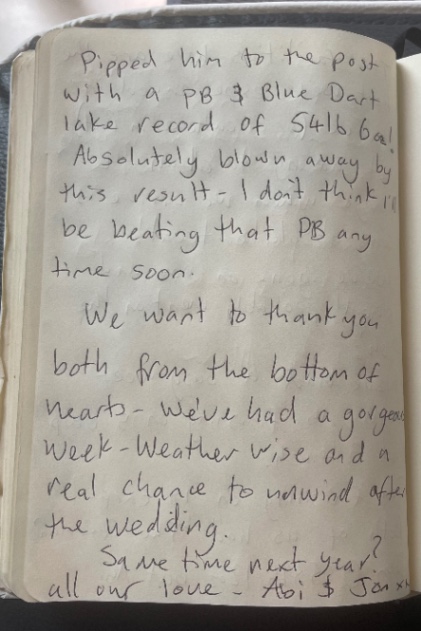 Pipped him to the post
with a PB & Blue Dart
lake record of 54lb 6oz!
Absolutely blown away by
this result - I don't think I'll
be beating that PB any
time soon.
We want to thank you
both from the bottom of
hearts - We've had a gorgeous
week - Weather wise and a
real chance to unwind after
the wedding.
Same time next year?
all our love - Abi & Jon xx